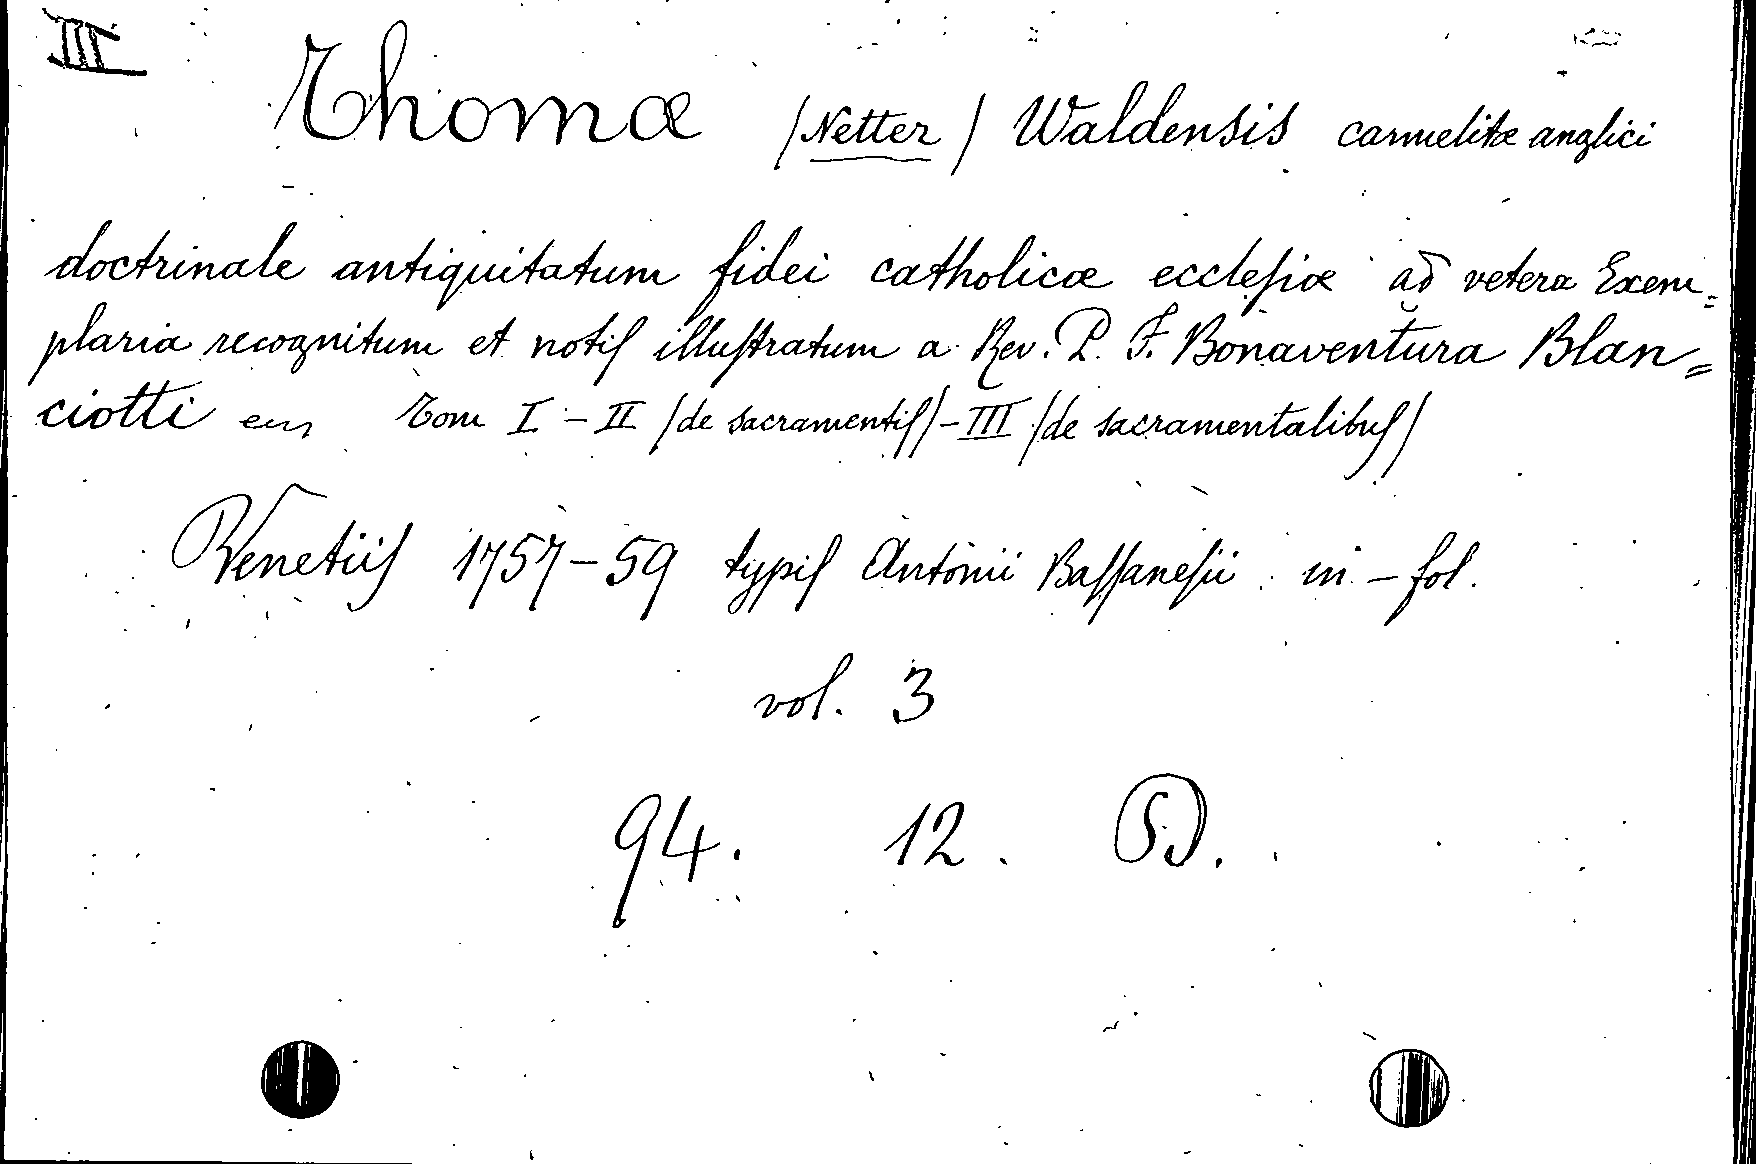 III
Thomæ /Netter/ Waldensis carmelitæ anglici
doctrinale antiquitatum fidei catholicæ eccleſiæ ad vetera Exem=
plaria recognitum et notiſ illuſtratum a Rev. P. F. Bonaventŭra Blan=
ciotti Tom I - II /de sacramentiſ/ - III /de sacramentalibuſ/
Venetiiſ 1757-59 typiſ Antonii Baſſaneſii in-fol.
vol. 3
94. 12.